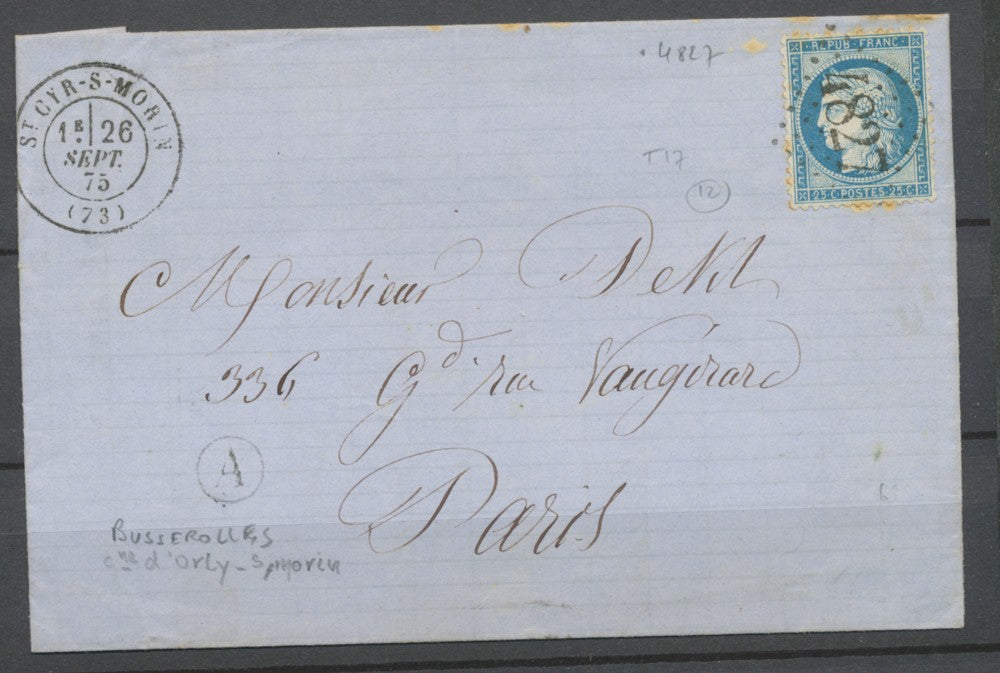 ST CYR-S-MORIN
1E. 26
SEPT.
75
(73)
4827
REPUB. FRANC.
4827
25 C. POSTES 25 C.
T17
12
Monsieur
336 Gd rue Vaugirard
A
Paris
BUSSEROLLES
cne d'Orly-s/morin